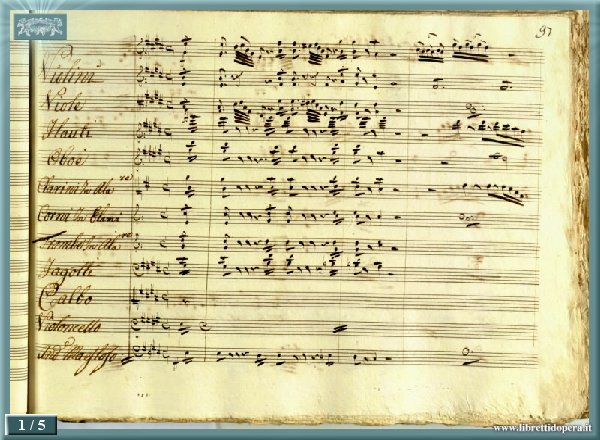 97
Violini
Viole
Flauti
Oboè
Clarini in Ala
Corni in
Trombe in Ala
Fagotti
Calbo
Violoncello
1 / 5
www.librettidopera.it